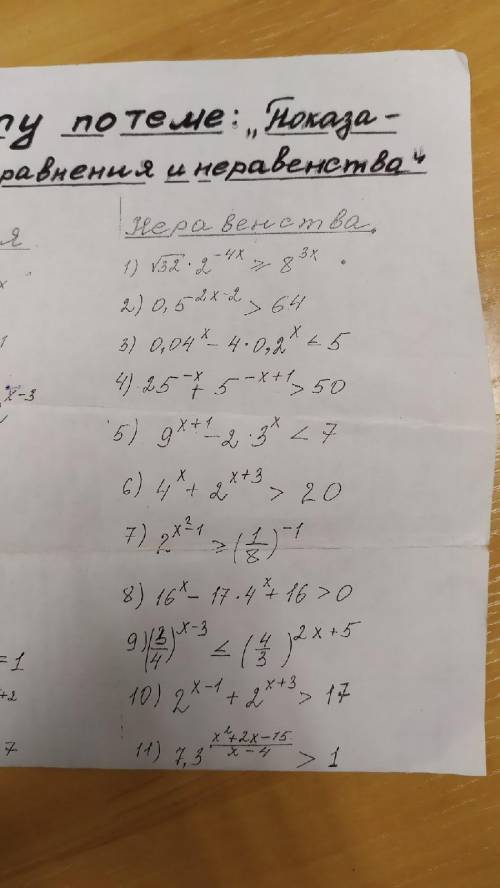 по теме: „Показа-
равнения и неравенства"
я
Неравенства.
1) √32 · 2^{-4x} ⩾ 8^{3x}
2) 0,5^{2x-2} > 64
3) 0,04^x - 4·0,2^x < 5
x-3
4) 25^{-x} + 5^{-x+1} > 50
5) 9^{x+1} - 2·3^x < 7
6) 4^x + 2^{x+3} > 20
7) 2^{x²-1} ⩾ (1/8)^{-1}
8) 16^x - 17·4^x + 16 > 0
9) (3/4)^{x-3} ≤ (4/3)^{2x+5}
=1
10) 2^{x-1} + 2^{x+3} > 17
+2
7
11) 7,3^{(x²+2x-15)/(x-4)} > 1